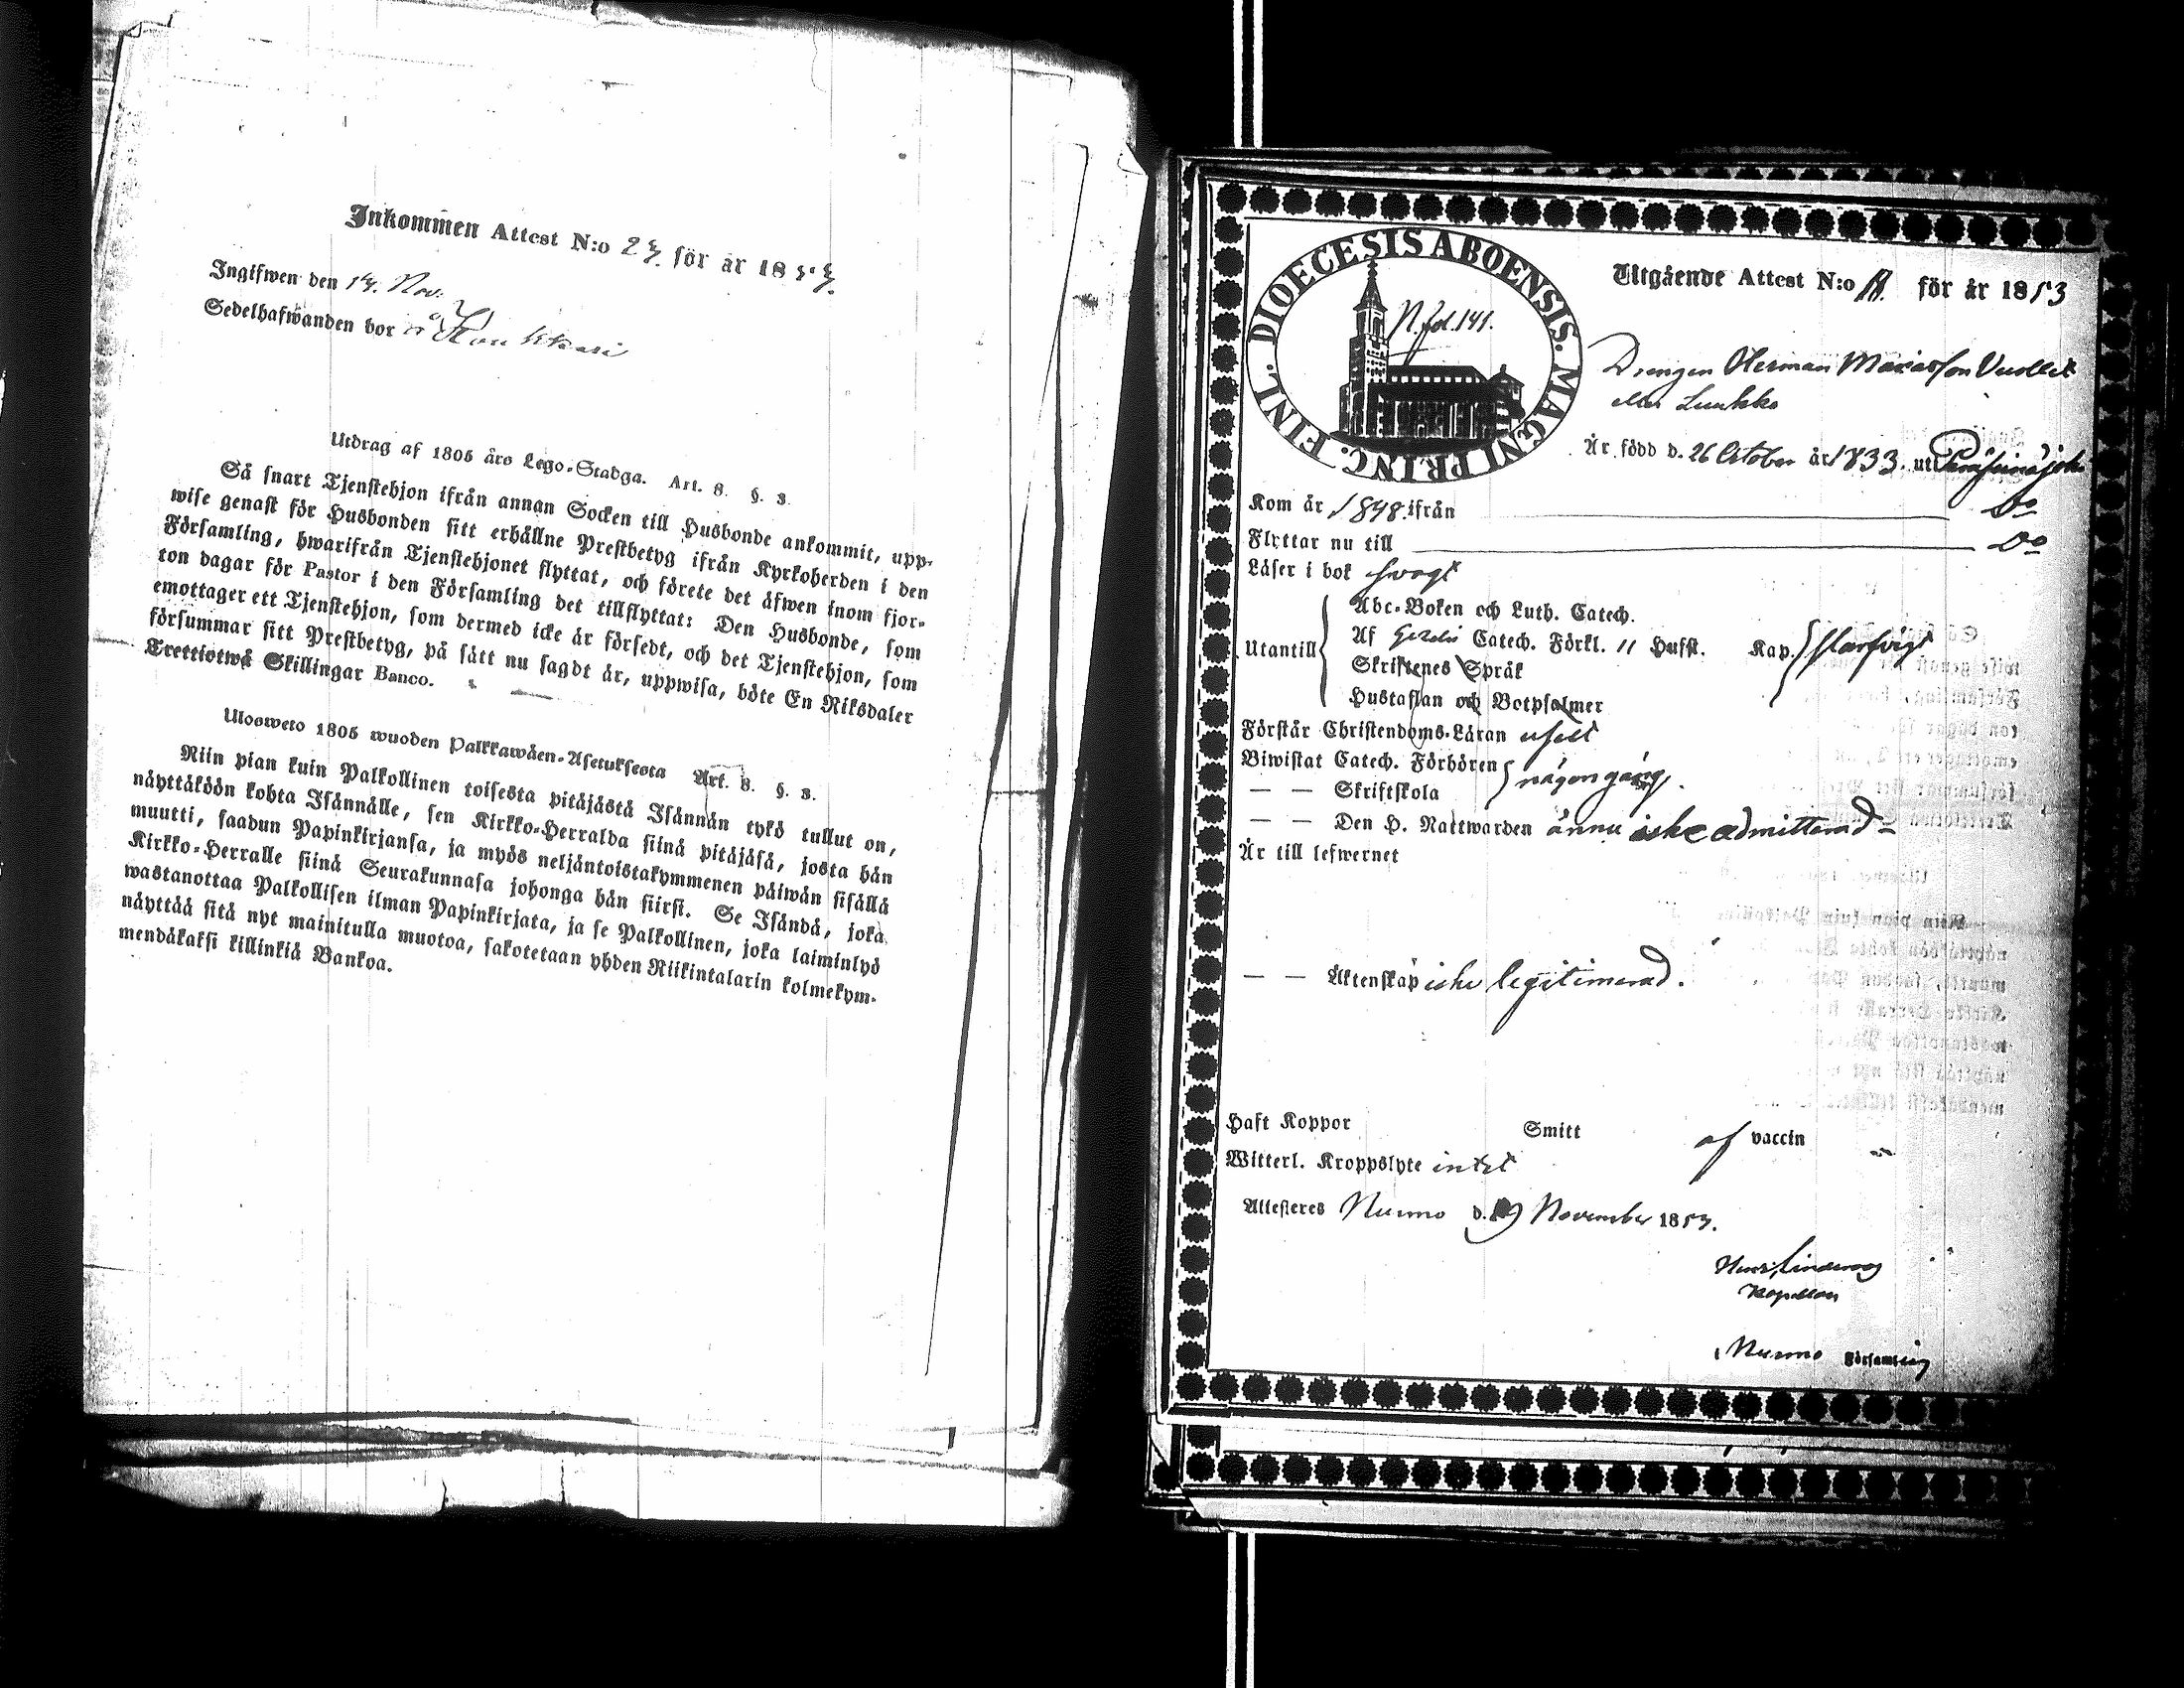 Inkommen Attest N:o 23. för år 1853.
Ingifwen den 14. Nov.
Sedelhafwanden bor
Utdrag af 1805 års Lego-Stadga. Art. 8. §. 3.
Så snart Tjenstehjon ifrån annan Socken till Husbonde ankommit, upp-
wise genast för Husbonden sitt erhållne Prestbetyg ifrån Kyrkoherden i den
Församling, hwarifrån Tjenstehjonet flyttat, och förete det äfwen inom fjor-
ton dagar för Pastor i den Församling det tillflyttat: Den Husbonde, som
emottager ett Tjenstehjon, som dermed icke är försedt, och det Tjenstehjon, som
försummar sitt Prestbetyg, på sätt nu sagdt är, uppwisa, böte En Riksdaler
Trettiotwå Skillingar Banco.
Ulosweto 1805 wuoden Palkkawäen-Asetuksesta Art. 8. §. 3.
Niin pian kuin Palkollinen toisesta pitäjästä Isännän tykö tullut on,
näyttäköön kohta Isännälle, sen Kirkko-Herralda siinä pitäjäsä, josta hän
muutti, saadun Papinkirjansa, ja myös neljäntoistakymmenen päiwän sisällä
Kirkko-Herralle siinä Seurakunnasa johonga hän siirsi. Se Isändä, joka
wastanottaa Palkollisen ilman Papinkirjata, ja se Palkollinen, joka laiminlyö
näyttää sitä nyt mainitulla muotoa, sakotetaan yhden Riikintalarin kolmekym-
mendäkaksi killinkiä Bankoa.
DIOECESIS ABOENSIS. MAGNI PRINC. FINL.
N. fol. 141.
Utgående Attest N:o för år 1853
Drengen Herman Mariasson
eller Luukko
Är född d. 26 October år 1833. uti
Kom år 1848. ifrån Do
Flyttar nu till Do
Läser i bok svagt
Abc-Boken och Luth. Catech.
Utantill Af Catech. Förkl. 11 Hufst. Kap.
Skriftenes Språk
Hustaflan och Botpsalmer
Förstår Christendoms-Läran uselt
Biwistat Catech. Förhören någon gång.
— — Skriftskola
— — Den H. Nattwarden ännu icke admitterad
Är till lefwernet
— — Äktenskap icke legitimerad.
Haft Koppor Smitt af vaccin
Witterl. Kroppslyte intet
Attesteres Nurmo d. 9 November 1853.
Kapellan
Nurmo Församling